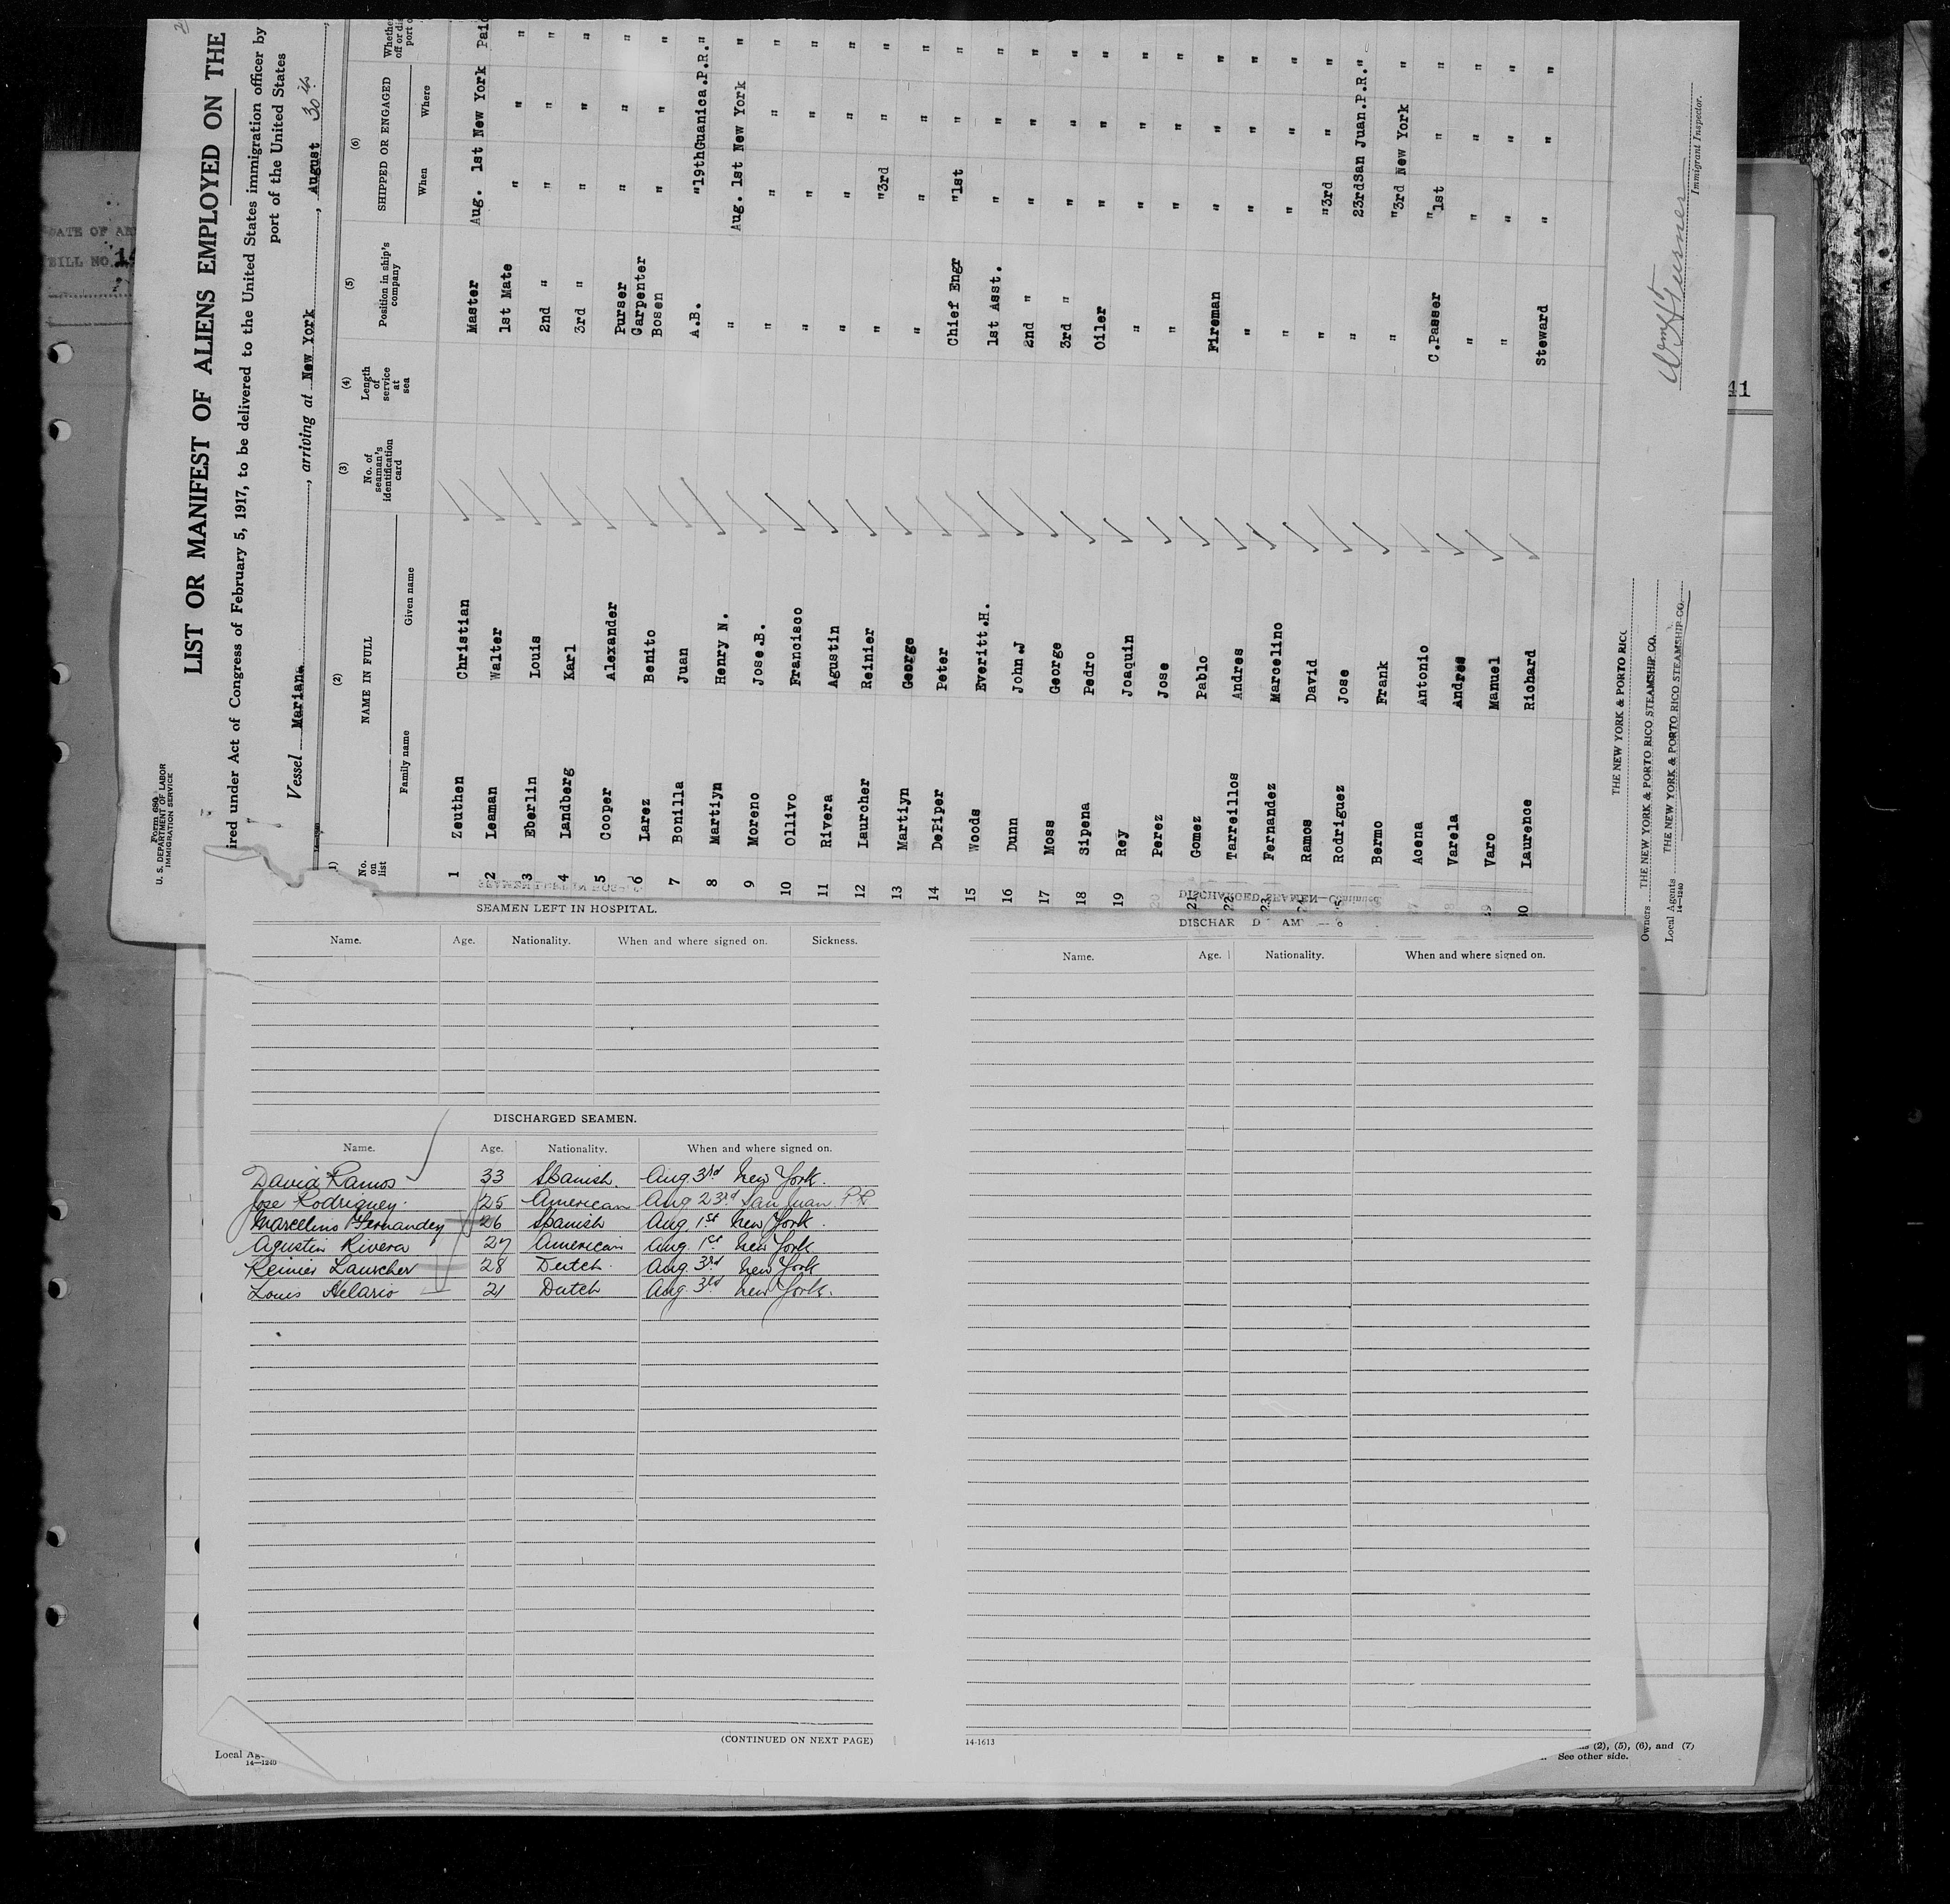 LIST OR MANIFEST OF ALIENS EMPLOYED ON THE
Form 680
U. S. DEPARTMENT OF LABOR
IMMIGRATION SERVICE
ired under Act of Congress of February 5, 1917, to be delivered to the United States immigration officer by
port of the United States
Vessel Mariana, arriving at New York, August 30th
(2) (3) (4) (5) (6)
No. on list
NAME IN FULL
Family name Given name
No. of seaman's identification card
Length of service at sea
Position in ship's company
SHIPPED OR ENGAGED
When Where
1 Zeuthen Christian Master Aug. 1st New York Paid
2 Leaman Walter 1st Mate " " "
3 Eberlin Louis 2nd " " " "
4 Landberg Karl 3rd " " " "
5 Cooper Alexander Purser " " "
Carpenter
6 Larez Benito Bosen " " "
7 Bonilla Juan A.B. "19th Guanica.P.R. "
8 Martiyn Henry N. " Aug. 1st New York "
9 Moreno Jose.B. " " " "
10 Ollivo Francisco " " " "
11 Rivera Agustin " " " "
12 Laurcher Reinier " "3rd " "
13 Martiyn George " " " "
14 DePiper Peter Chief Engr "1st " "
15 Woods Everitt.H. 1st Asst. " " "
16 Dunn John J 2nd " " " "
17 Moss George 3rd " " " "
18 Sipena Pedro Oiler " " "
19 Rey Joaquin " " " "
20 Perez Jose " " " "
21 Gomez Pablo Fireman " " "
22 Tarreillos Andres " " " "
23 Fernandez Marcelino " " " "
24 Ramos David " "3rd " "
25 Rodriguez Jose " 23rd San Juan.P.R. "
Bermo Frank " "3rd New York "
27 Acena Antonio C.Passer "1st " "
28 Varela Andres " " " "
29 Varo Manuel " " " "
30 Laurence Richard Steward " " "
THE NEW YORK & PORTO RICO
Owners THE NEW YORK & PORTO RICO STEAMSHIP CO.
Local Agents THE NEW YORK & PORTO RICO STEAMSHIP CO.
14-1240
Immigrant Inspector.
DATE OF AR
BILL NO.
41
SEAMEN LEFT IN HOSPITAL.
Name. Age. Nationality. When and where signed on. Sickness.
DISCHARGED SEAMEN.
Name. Age. Nationality. When and where signed on.
David Ramos 33 Spanish. Aug 3rd New York.
Jose Rodriguez. 25 American Aug 23rd San Juan P.R
Marcelino Fernandez 26 Spanish Aug. 1st New York.
Agustin Rivera 27 American Aug. 1st New York
Reinier Laurscher 28 Dutch. Aug. 3rd New York
Louis Helario 21 Dutch Aug. 3rd New York.
(CONTINUED ON NEXT PAGE)
DISCHARGED SEAMEN—Continued.
Name. Age. Nationality. When and where signed on.
14-1613
Local Ag
14—1240
(2), (5), (6), and (7)
See other side.